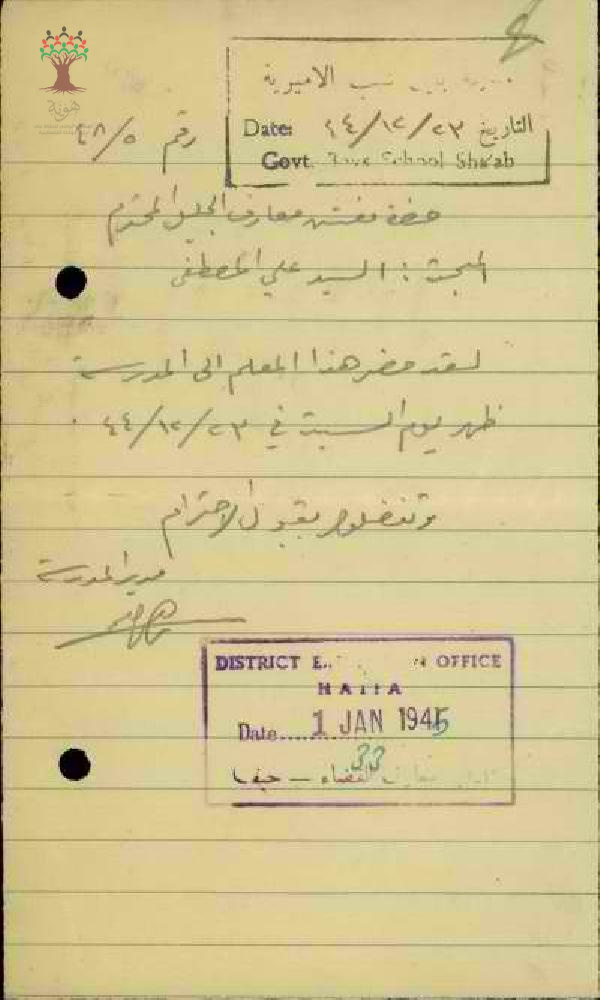 هوية
مدرسة بنين شعب الاميرية
Date: ٤٤/١٢/٢٣ التاريخ
Govt. Boys School Sha'ab
رقم ٤٨/٥
حضرة مفتش معارف الجليل المحترم
المبحث : السيد علي المصطفى
لقد حضر هذا المعلم الى المدرسة
ظهر يوم السبت في ٤٤/١٢/٢٣ .
وتفضلوا بقبول الاحترام
مدير المدرسة
DISTRICT OFFICE
HAIFA
Date.....1 JAN 1945
33
معارف القضاء – حيفا